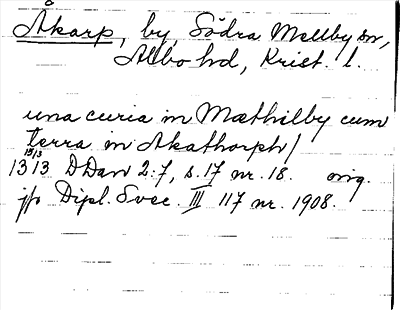 Åkarp, by, Södra Mellby sn,
Albo hd, Krist. l.
una curia in Mæthelby cum
terra in Akathorph/
13 13/13 13 DDan 2:7, s. 17 nr. 18. orig.
jfr Dipl. Svec. III 117 nr. 1908.